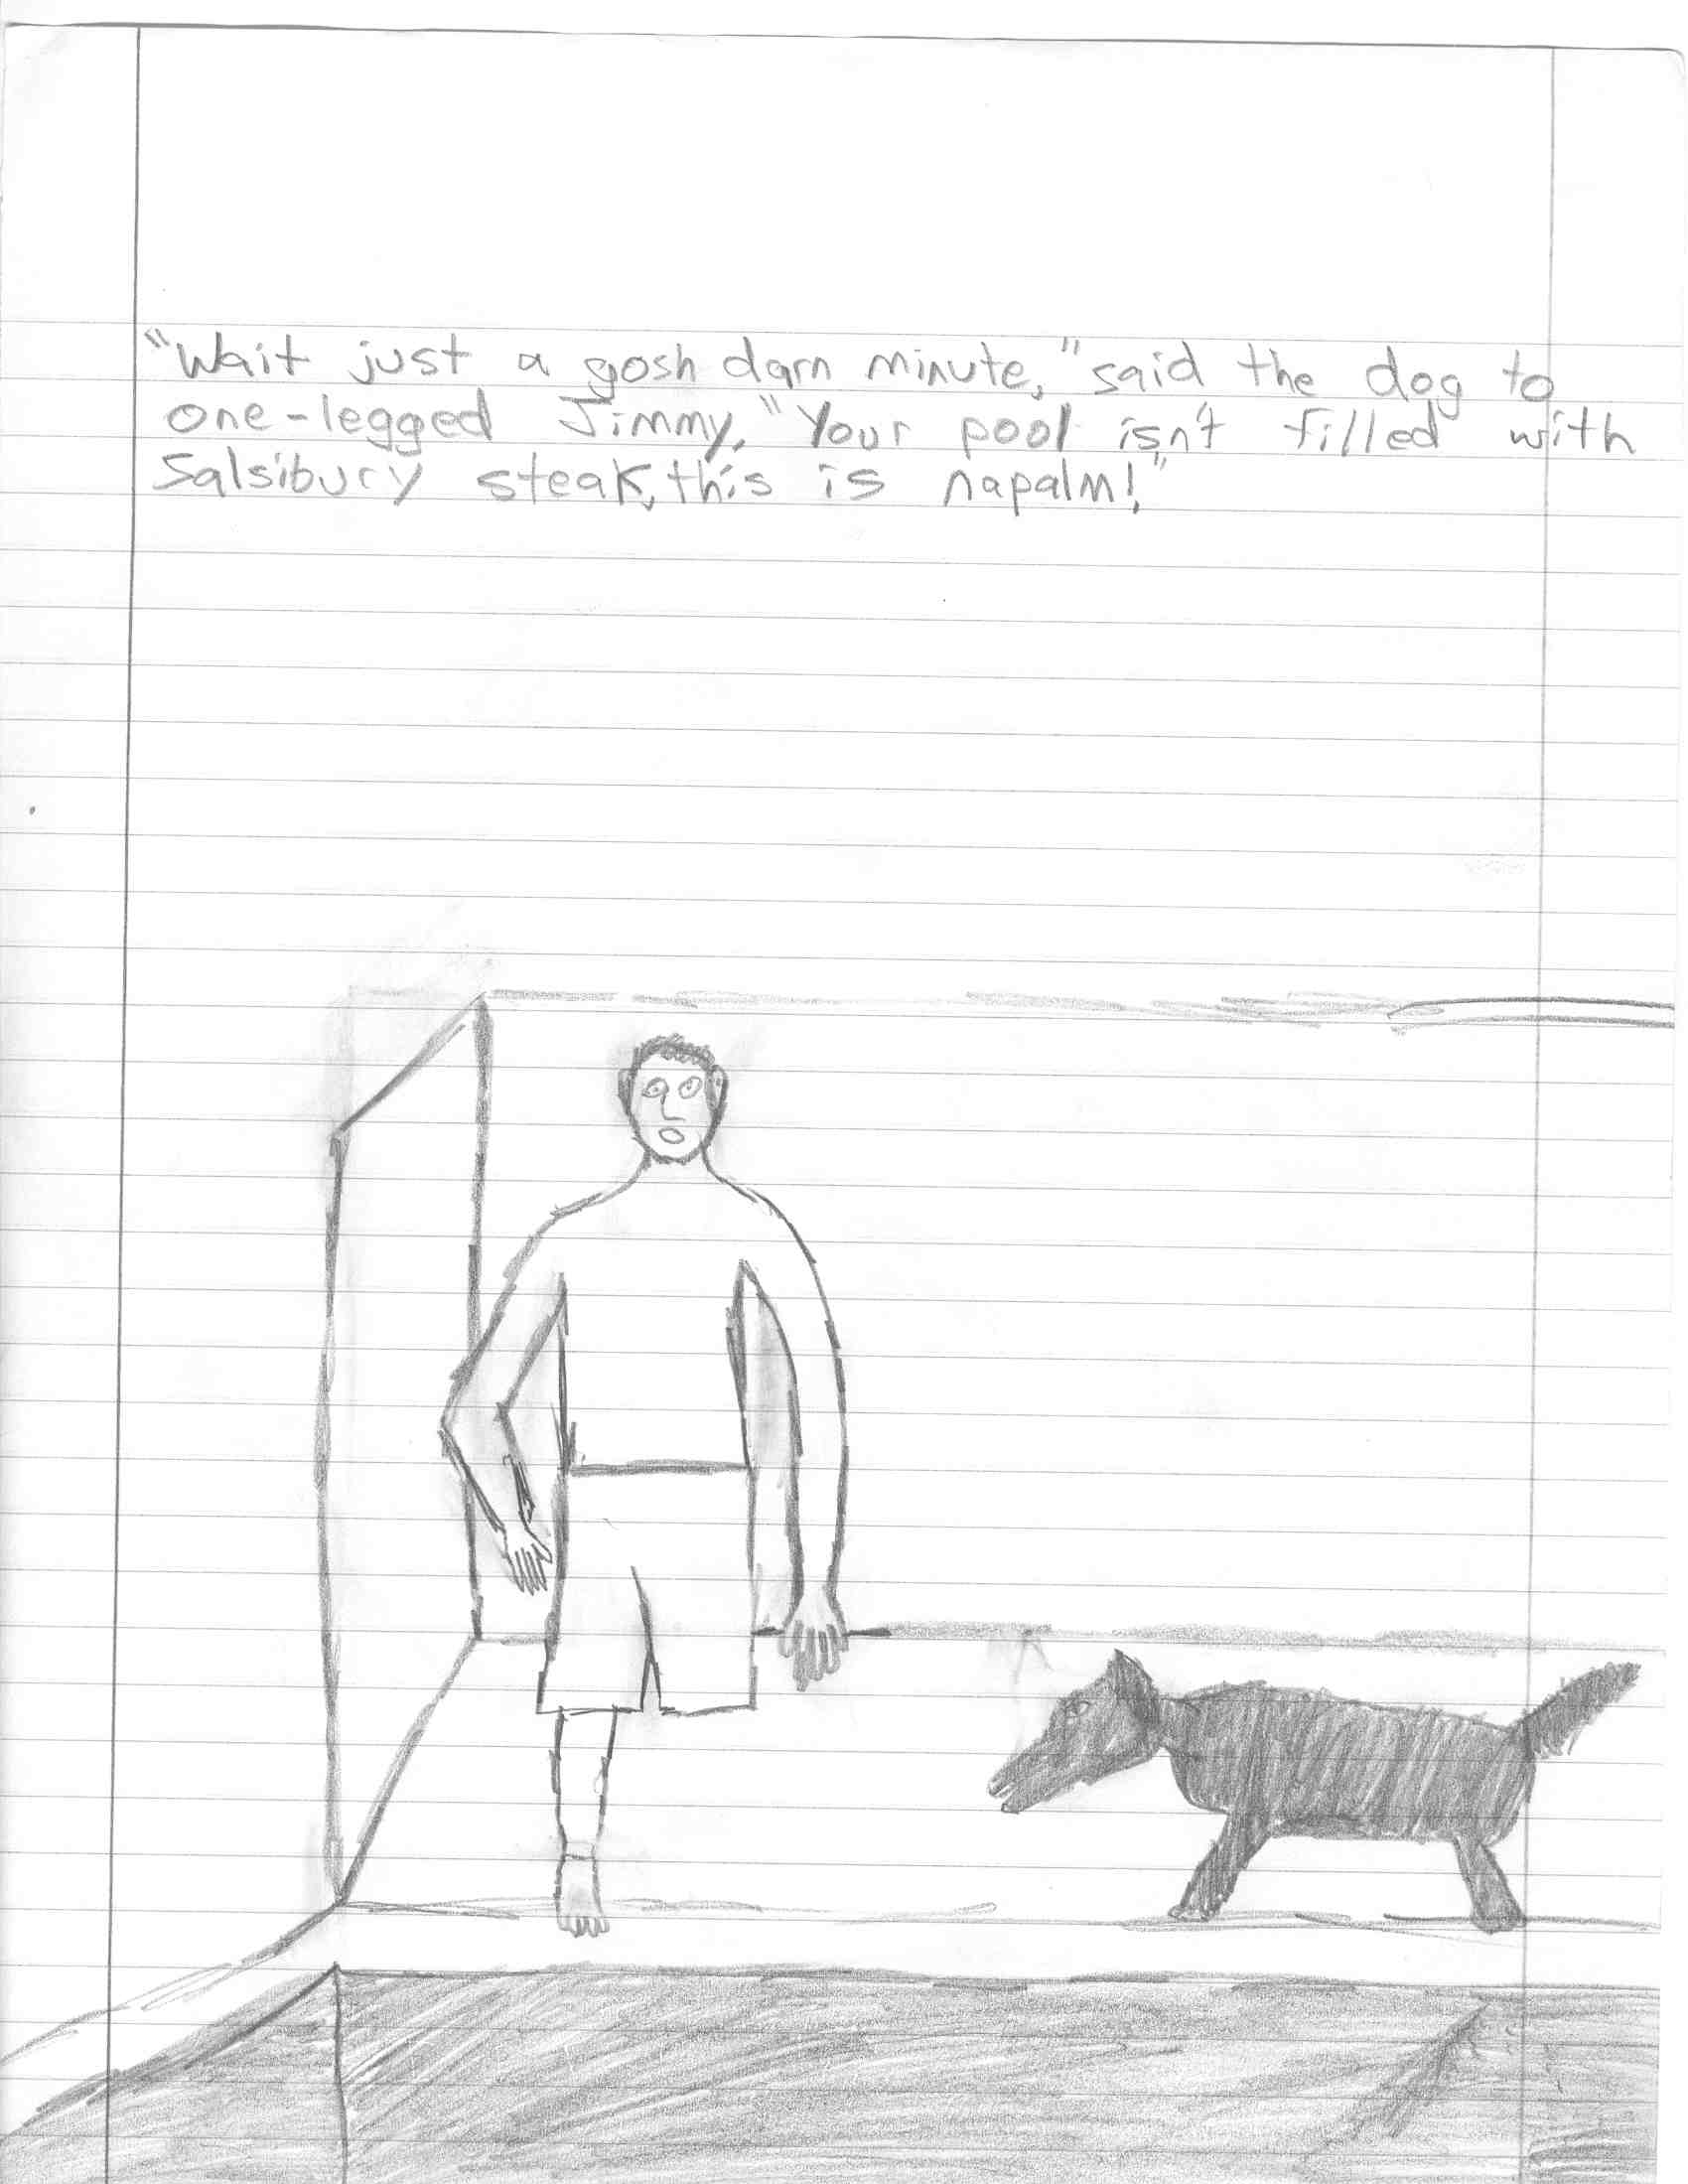 "Wait just a gosh darn minute," said the dog to
one-legged Jimmy, "Your pool isn't filled with
Salsibury steak, this is napalm!"